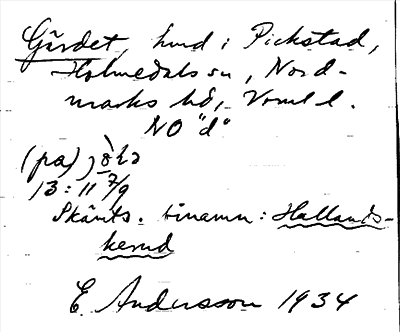 Gärdet, hmd i Pickstad,
Holmedals sn, Nord-
marks hd, Vrml l.
NO "d"
(på)
13:11 7/9
Skämts. binamn: Hallands-
kerud
E. Andersson 1934